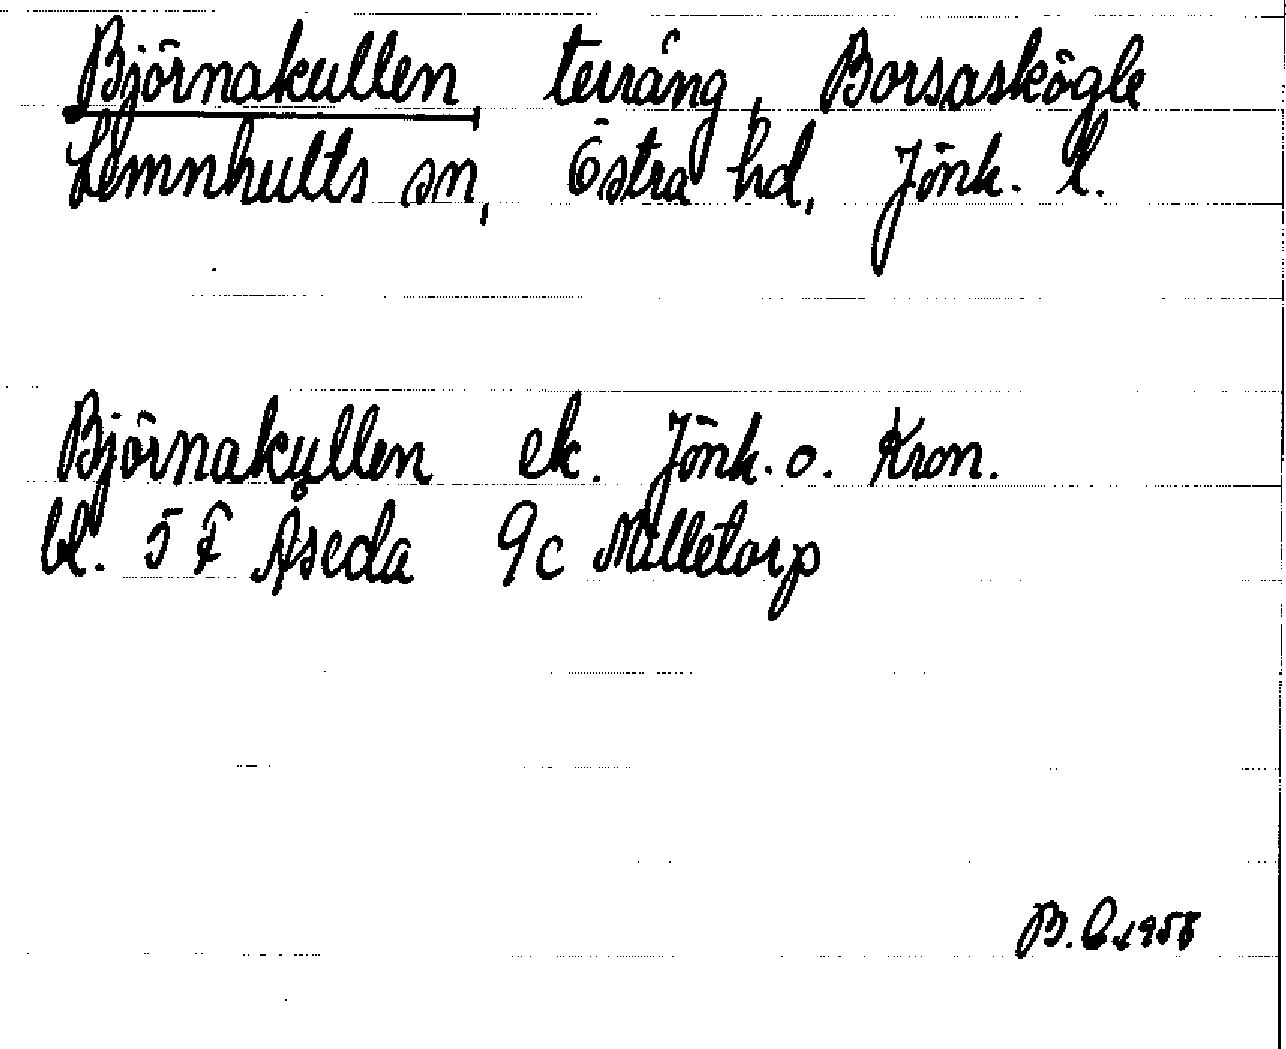 Björnakullen, terräng, Borsaskögle
Lemnhults sn, Östra hd, Jönk. l.
Björnakullen ek. Jönk. o. Kron.
bl. 5 F Åseda 9c Milletorp
B. C. 1958